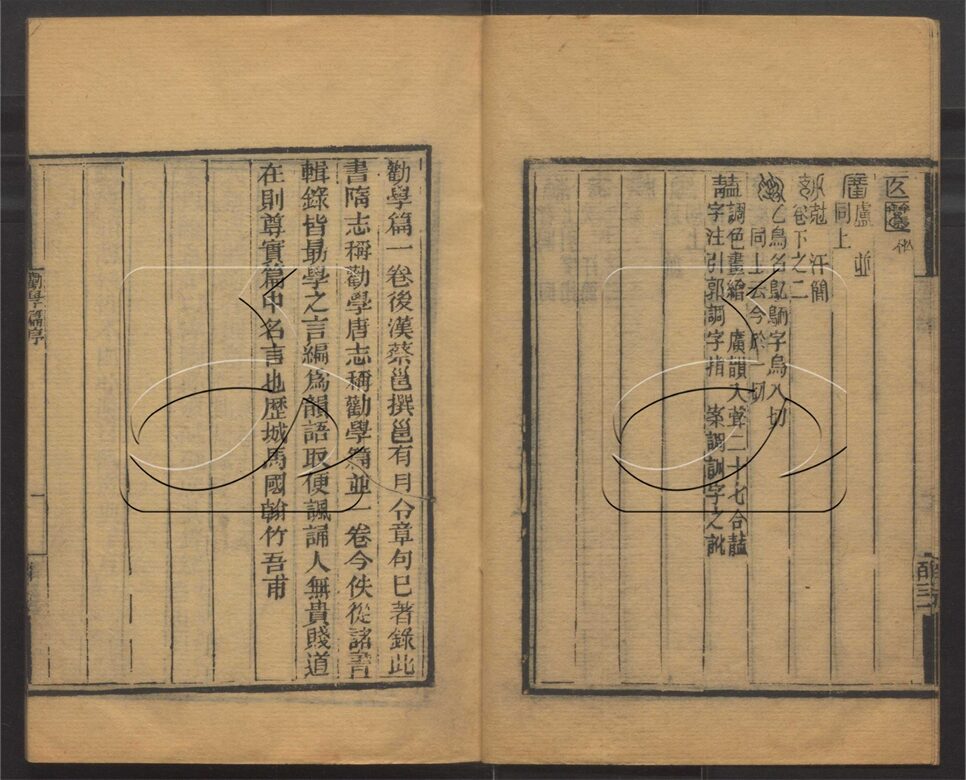 盧 並
同上
尅 汗簡
卷下之二
乙鳥名鳦鳾字烏八切
同上云今於一切
䪞調色畫繪 廣韻入聲二十七合䪞
字注引郭調字指 案調訓字之訛
勸學篇一卷後漢蔡邕撰邕有月令章句巳著錄此
書隋志稱勸學唐志稱勸學篇並一卷今佚從諸書
輯錄皆勗學之言編爲韻語取便諷誦人無貴賤道
在則尊實篇中名言也歴城馬國翰竹吾甫
勸學篇序
一